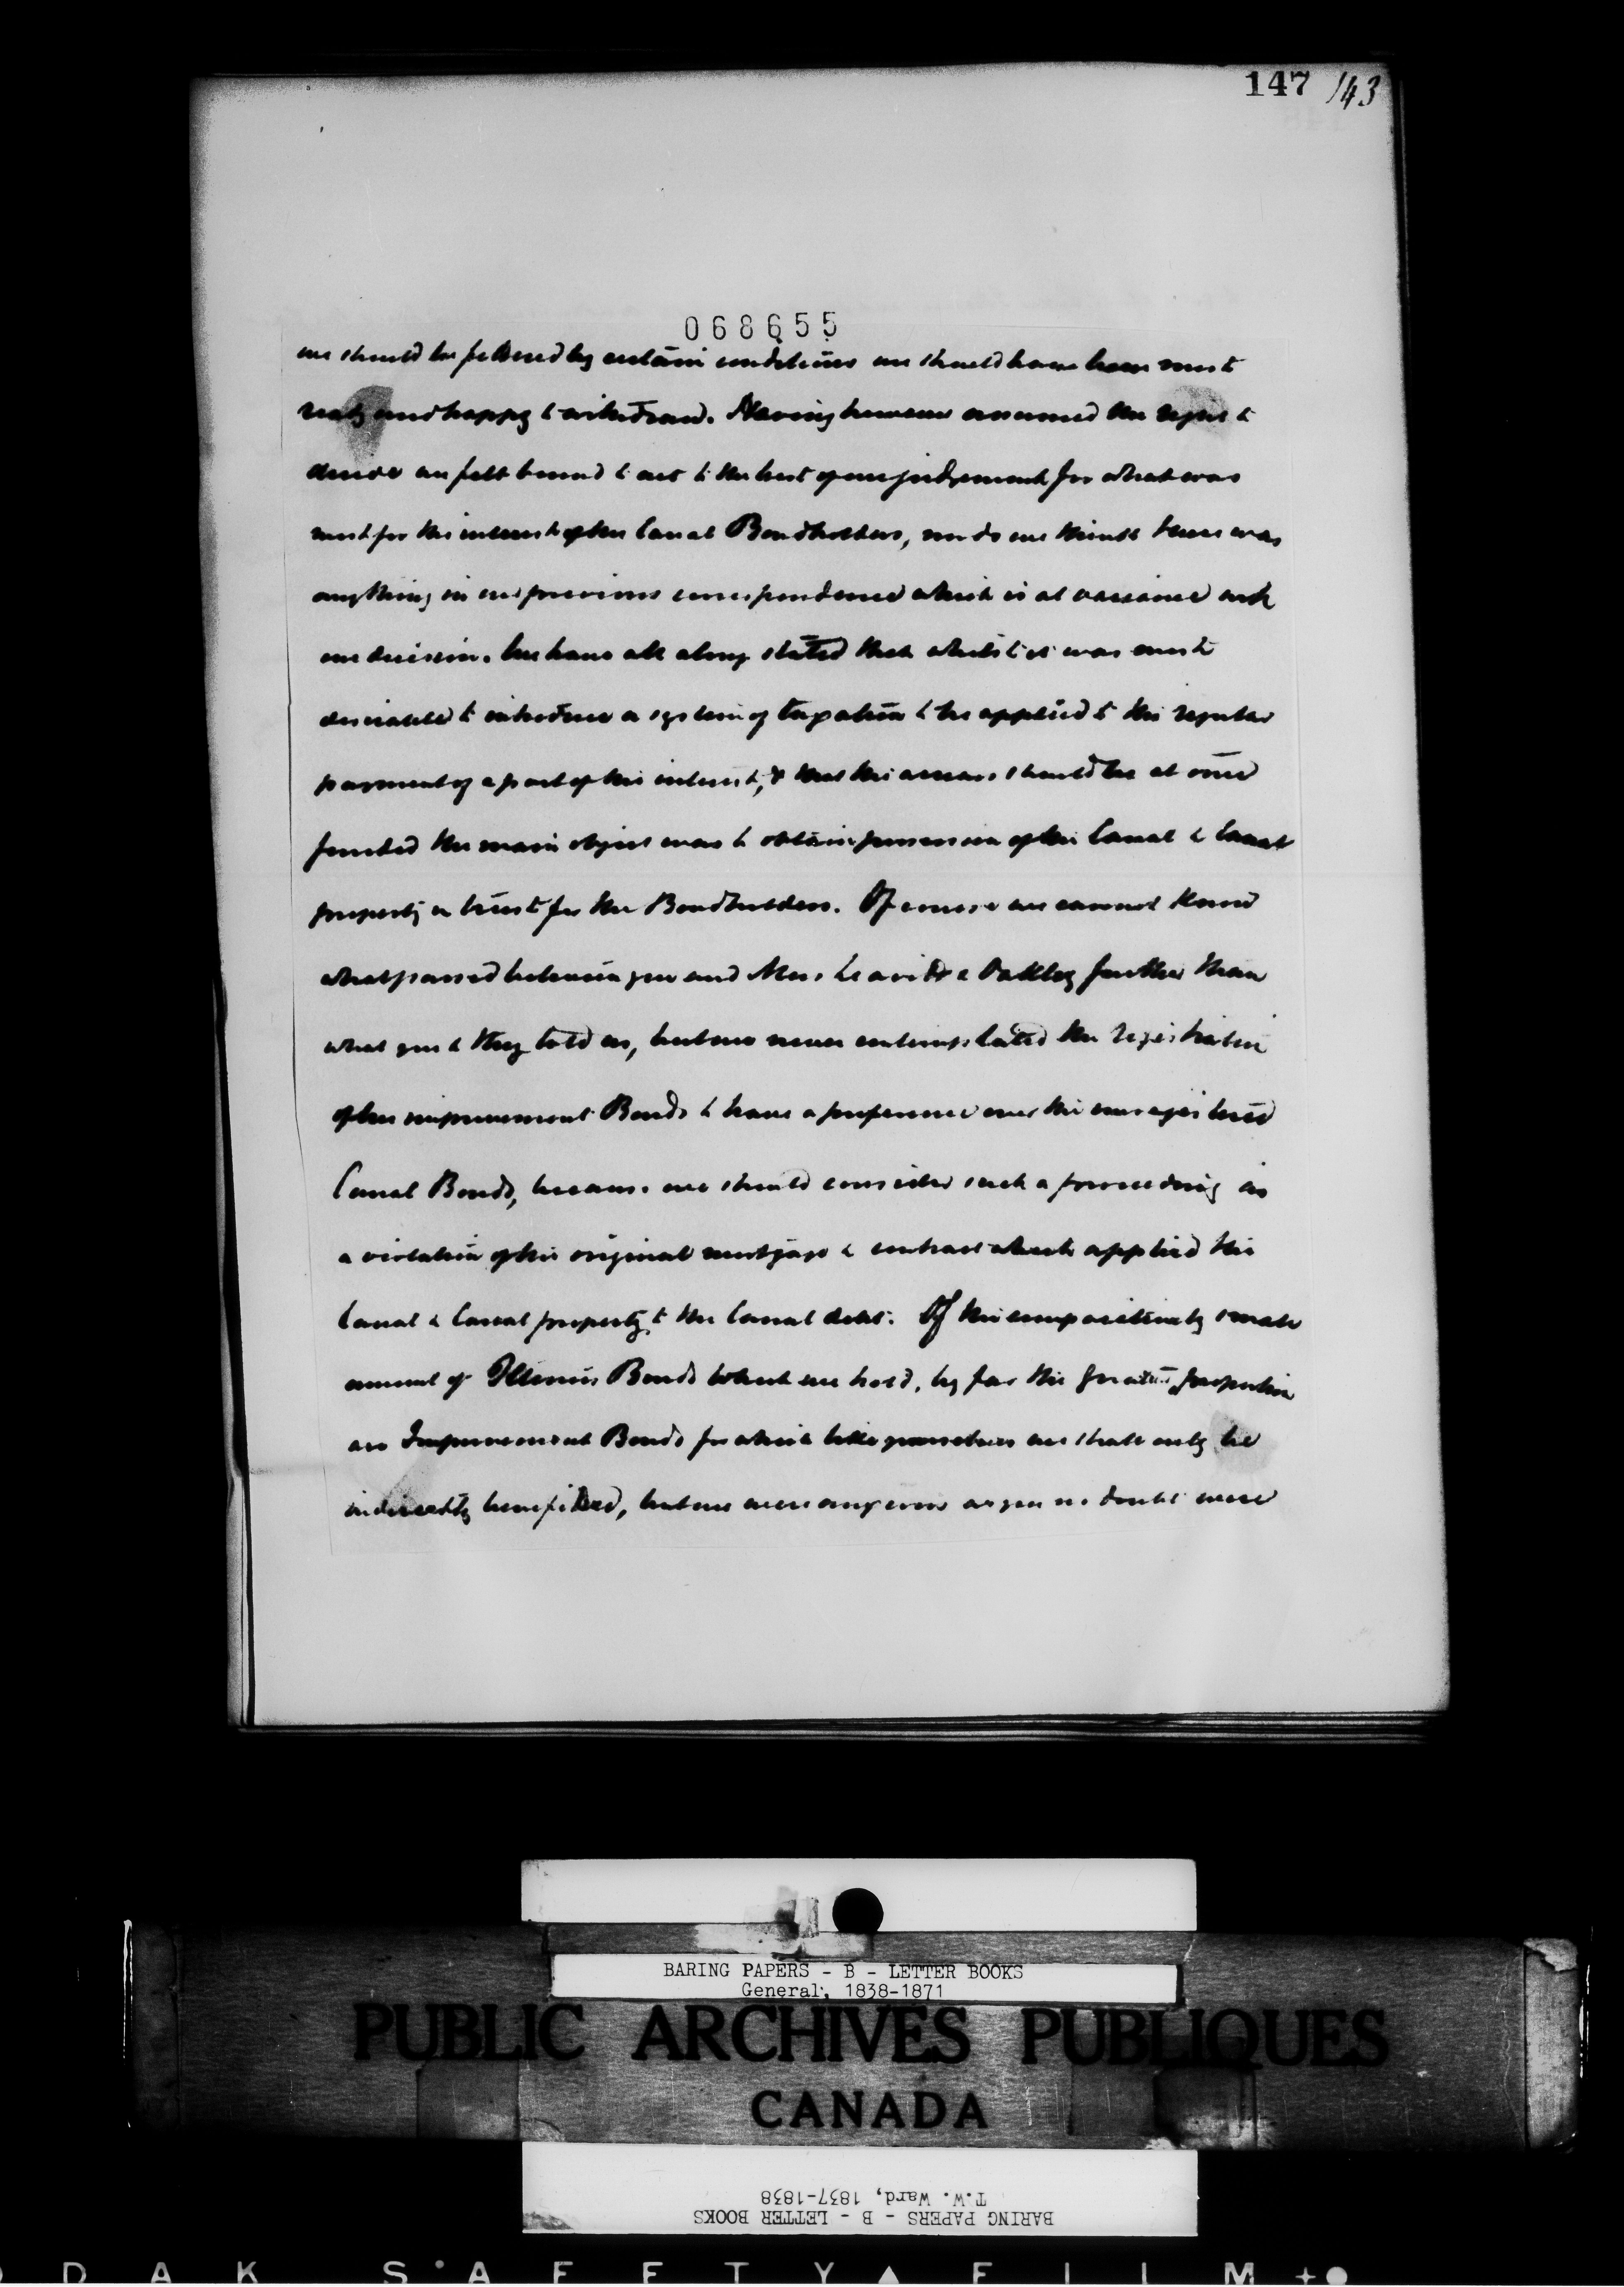 147 143
068655
we should be fettered by certain conditions we should have been most
ready and happy to withdraw. Having however assumed the right to
decide we felt bound to act to the best of our judgement for what was
most for the interest of the Canal Bondholders, nor do we think there was
anything in our previous correspondence which is at variance with
our decision. We have all along stated that whilst it was most
desirable to introduce a system of taxation to be applied to the regular
payment of a part of the interest, & that the arrears should be at once
funded the main object was to obtain possession of the Canal & Canal
property in trust for the Bondholders. Of course we cannot know
what passed between you and Mess Leavitt & Oakley further than
what you & they told us, but we never contemplated the registration
of the improvement Bonds to have a preference over the unregistered
Canal Bonds, because we should consider such a proceeding as
a violation of the original mortgage & contract which applied the
Canal & Canal property to the Canal debt. Of the comparatively small
amount of Illinois Bonds which we hold, by far the greatest proportion
are Improvement Bonds for which like yourselves we shall only be
indirectly benefitted, but we were anxious as you no doubt were
BARING PAPERS - B - LETTER BOOKS
General, 1838-1871
PUBLIC ARCHIVES PUBLIQUES
CANADA
BARING PAPERS - B - LETTER BOOKS
T.W. Ward, 1837-1838
DAK SAFETY FILM